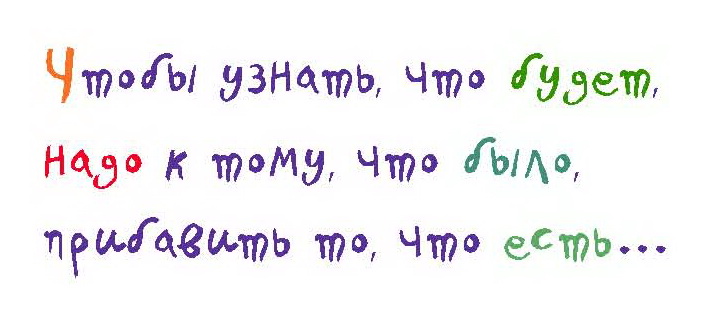 Чтобы узнать, что будет,
Надо к тому, что было,
прибавить то, что есть...